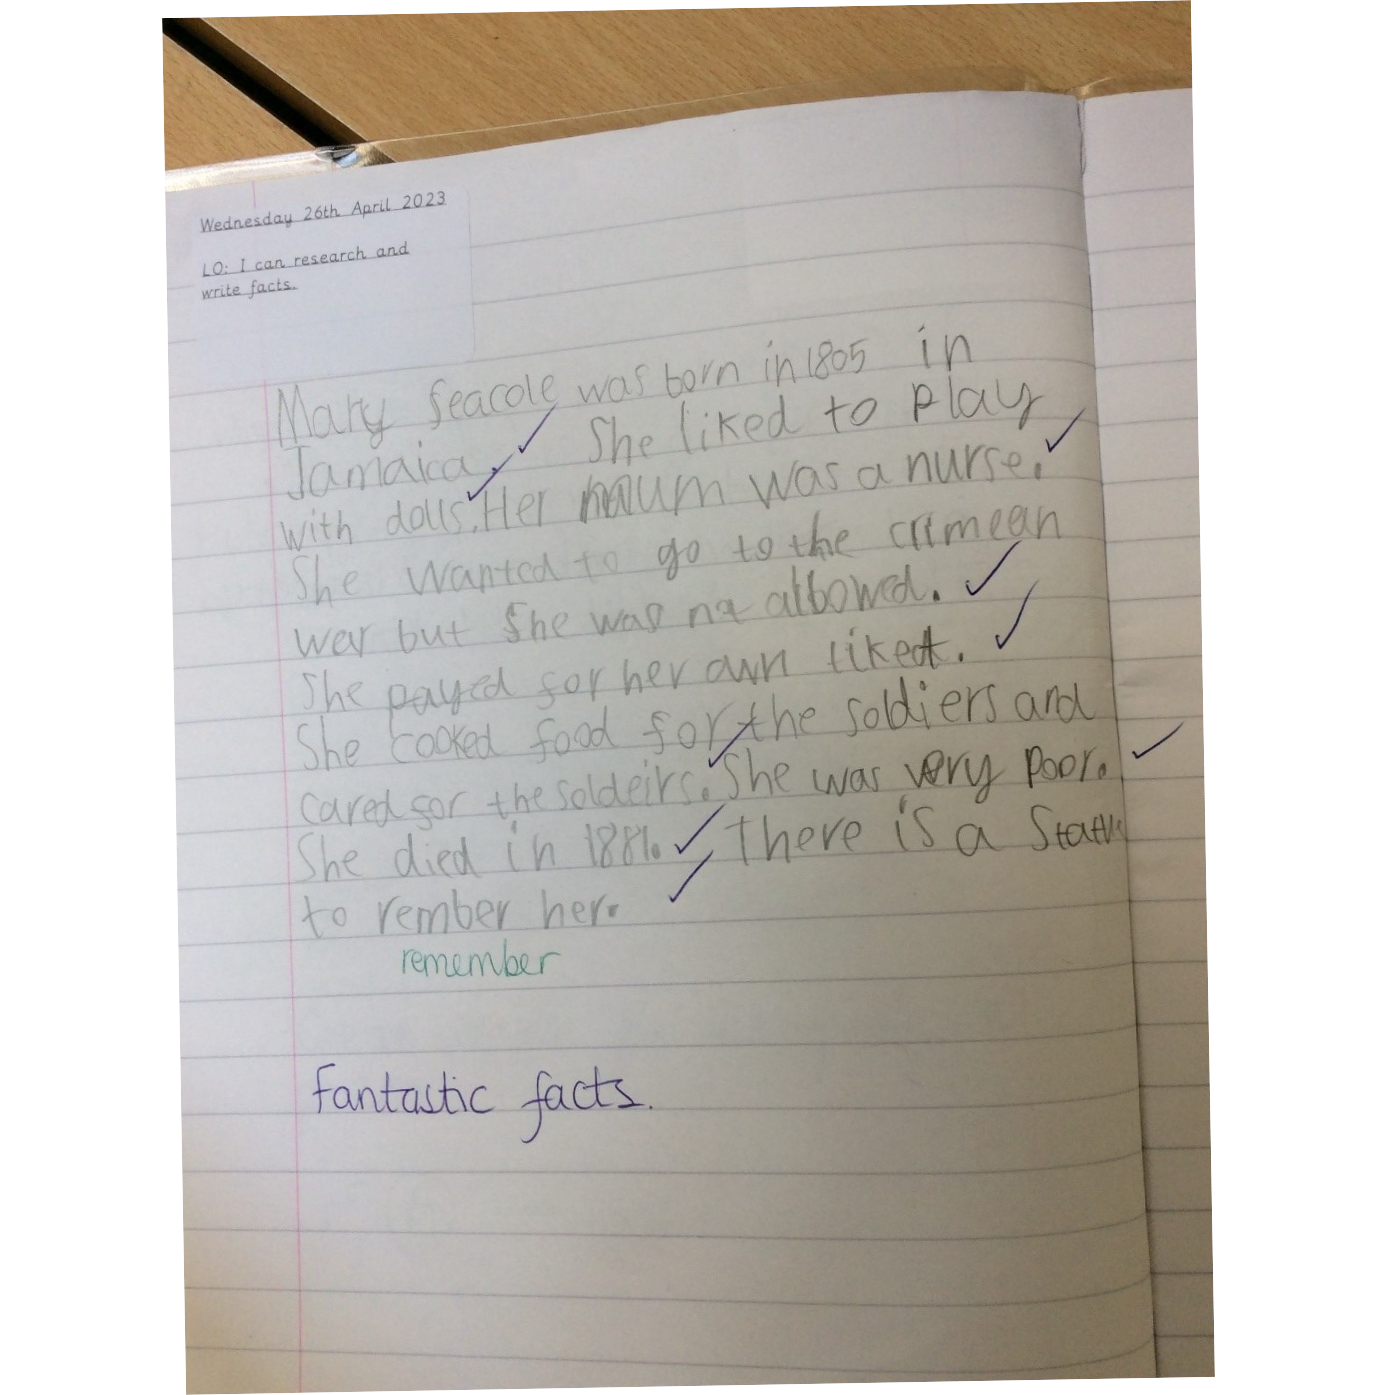 Wednesday 26th April 2023
LO: I can research and
write facts.
Mary Seacole was born in 1805 in
Jamaica. She liked to play
with dolls. Her mum was a nurse.
She wanted to go to the crimean
wer but She was not allowed.
She payed for her own tiket.
She cooked food for the soldiers and
cared for the soldeirs. She was very poor.
She died in 1881. There is a Statue
to rember her.
remember
Fantastic facts.